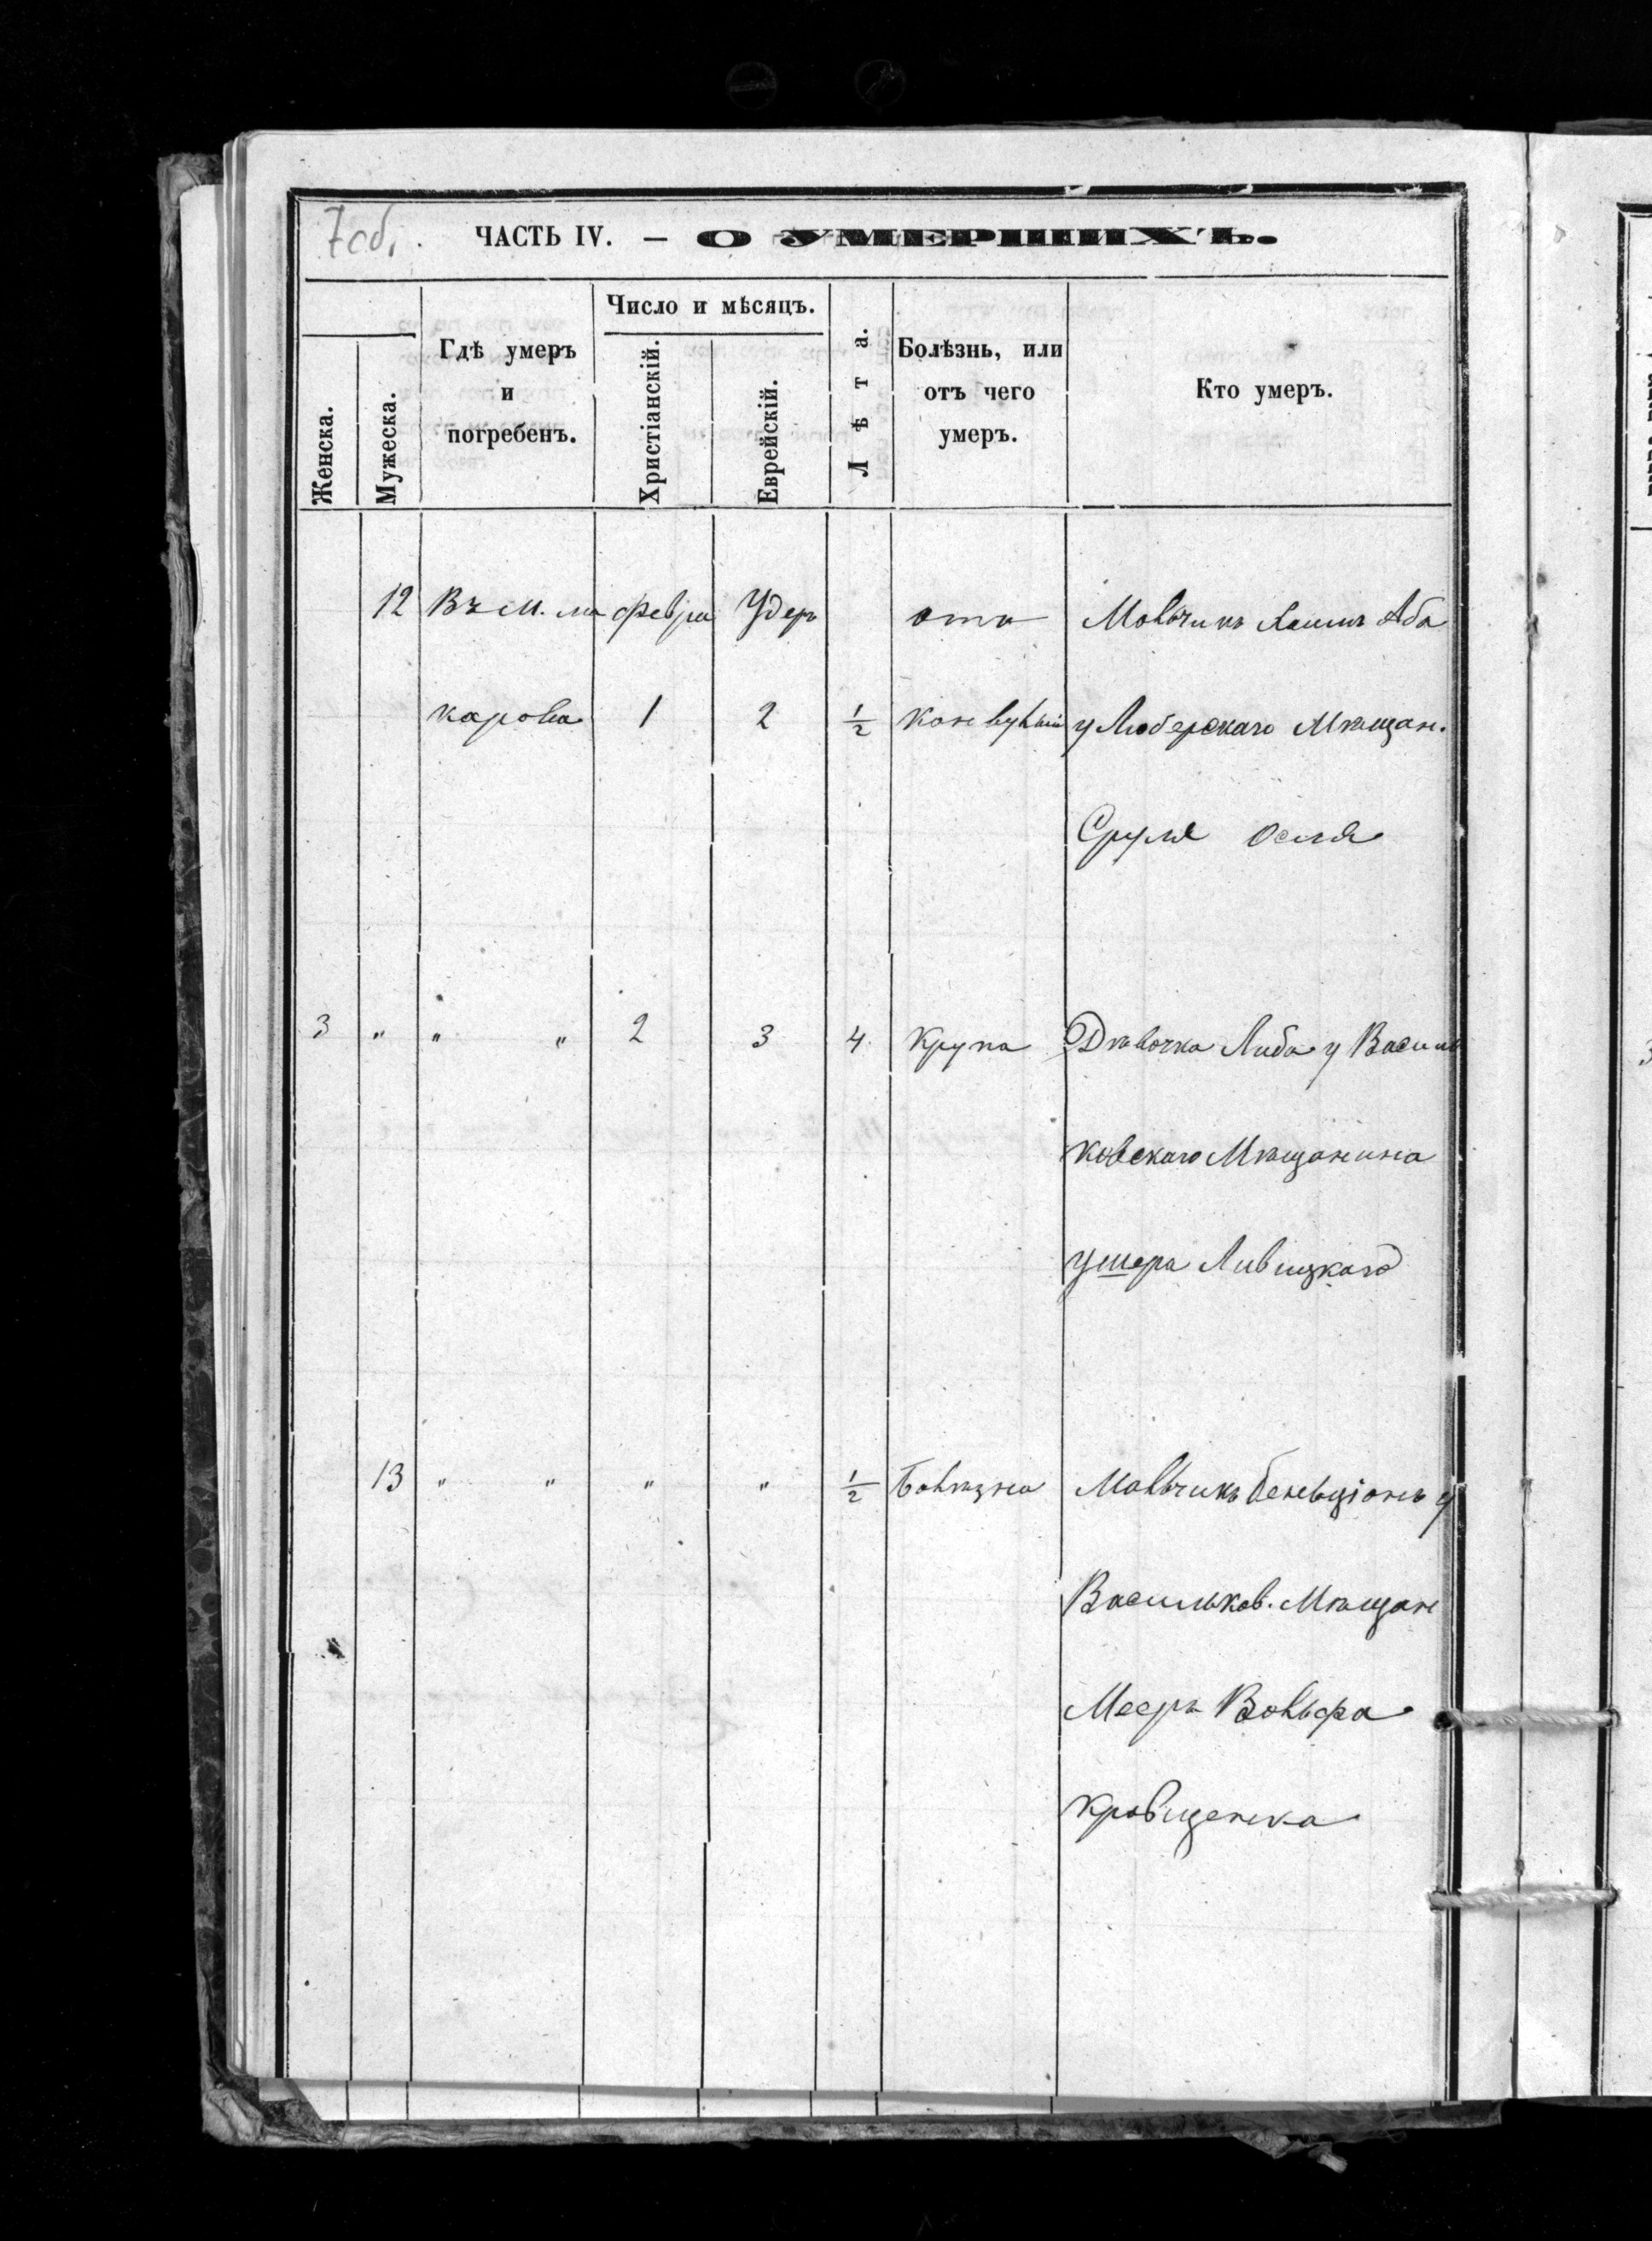 7 об.
ЧАСТЬ IV. — О УМЕРШИХЪ.
Женска.
Мужеска.
Гдѣ умеръ
и
погребенъ.
Число и мѣсяцъ.
Христіанскій.
Еврейскій.
Лѣта.
Болѣзнь, или
отъ чего
умеръ.
Кто умеръ.
12 Въ м. ма февра Удеръ отъ Мальчикъ Аба
карова 1 2 1/2 у Люберскаго Мѣщан.
Сруля
3 " " " 2 3 4 Крупа Дѣвочка Либа у Василь
ковскаго Мѣщанина
Ушера Ливицкаго
13 " " " " 1/2 Мальчикъ Беньціонъ у
Васильков. Мѣщан
Мееръ Вольфа
Кровщенка